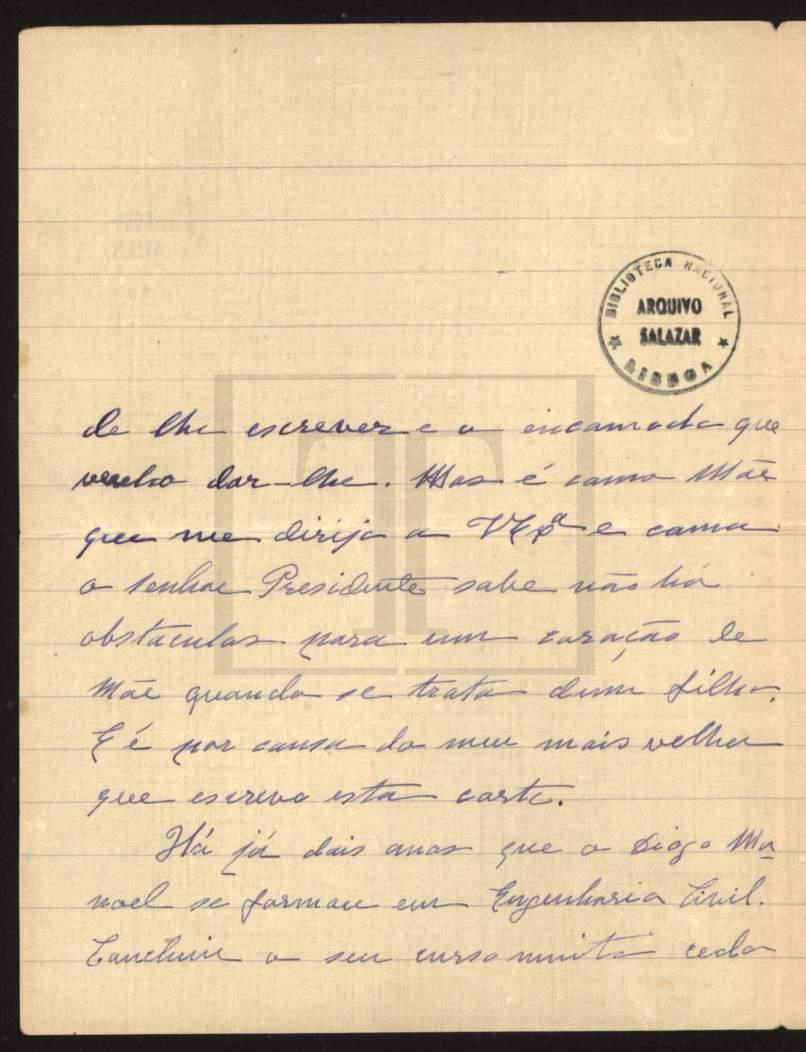 BIBLIOTECA NACIONAL
ARQUIVO
SALAZAR
LISBOA
de lhe escrever e o encomodo que
venho dar-lhe. Mas é como Mãe
que me dirijo a V Exª e como
o Senhor Presidente sabe não há
obstaculos para um coração de
Mãe quando se trata dum filho.
E é por causa do meu mais velho
que escrevo esta carta.
Há já dois anos que o Diogo Ma
noel se formou em Engenharia Civil.
Concluiu o seu curso muito cedo